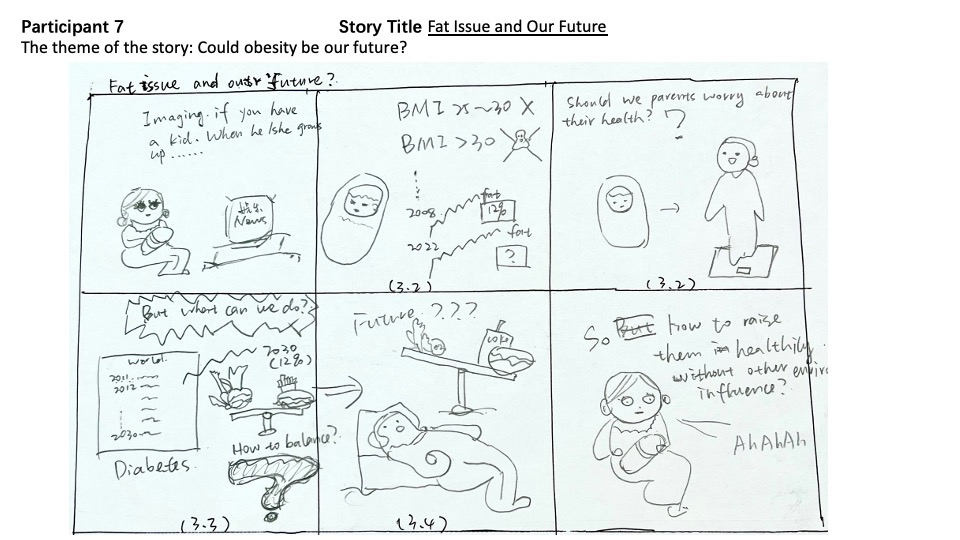 Participant 7 Story Title Fat Issue and Our Future
The theme of the story: Could obesity be our future?
Fat issue and our future?
Imaging. if you have
a kid. When he/she grows
up ......
News
BMI 25~30 X
BMI >30
2008
fat
12%
2022
fat
?
(3.2)
Should we parents worry about
their health?
?
(3.2)
But what can we do?
World.
2011
2012
2030
Diabetes.
2030
(12%)
How to balance?
(3.3)
Future ???
(3.4)
So But how to raise
them in healthily
without other enviro
influence?
AhAhAh